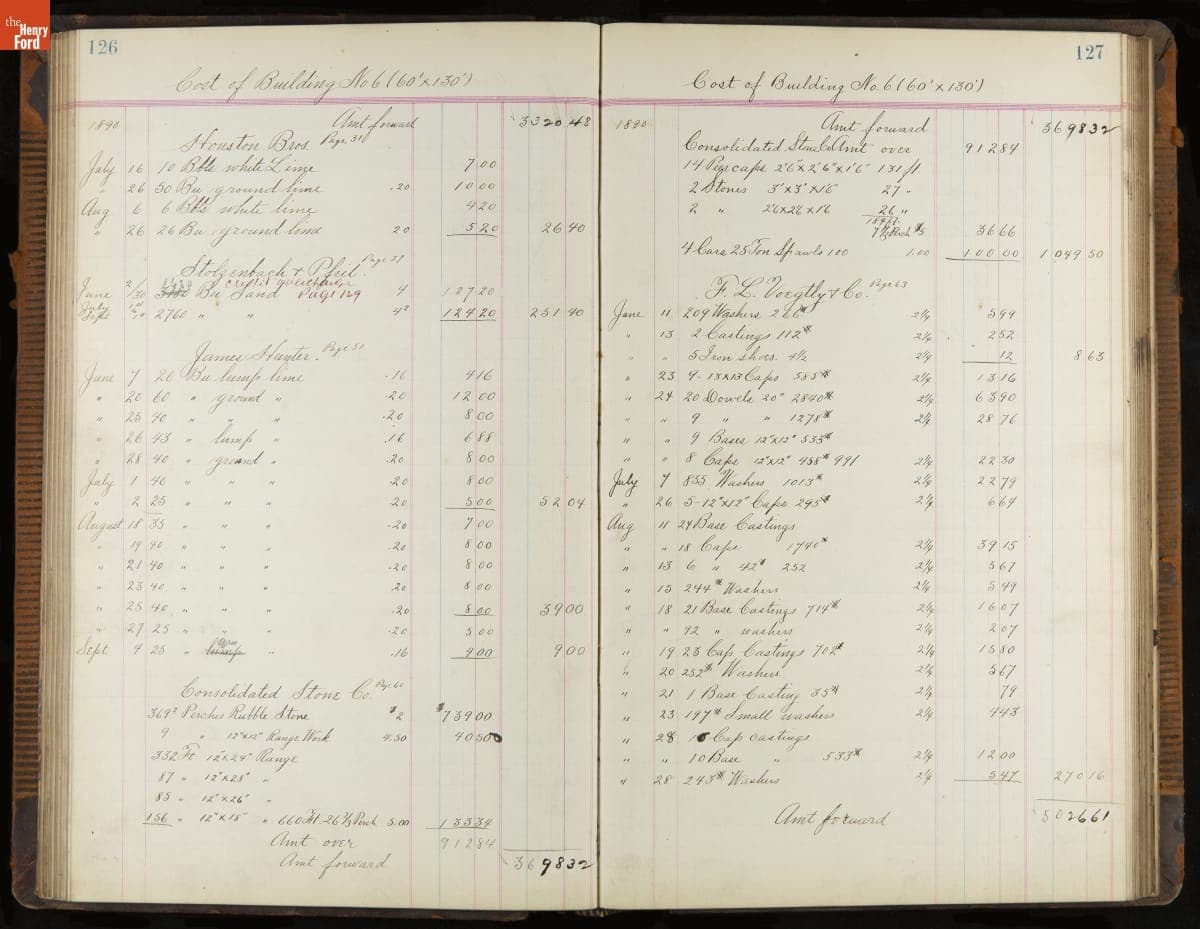 the
Henry
Ford
126
Cost of Building No 6 (60' x 130')
1890 Amt forward 3320 48
Houston Bros. Page 31
July 16 10 Bbls white Lime 7 00
" 26 50 Bu ground lime .20 10 00
Aug 6 6 Bbls white lime 4 20
" 26 26 Bu ground lime 20 5 20 26 40
Stolzenbach & Pfeil. Page 37
June 2/30 Bu Sand Page 129 4 127 20
Sept 2760 " " 124 20 251 40
James Hunter. Page 51
June 7 26 Bu lump lime .16 4 16
" 20 60 " ground " .20 12 00
" 25 40 " " " .20 8 00
" 26 43 " lump " .16 6 88
" 28 40 " ground " .20 8 00
July 1 40 " " " .20 8 00
" 2 25 " " " .20 5 00 52 04
August 18 35 " " " .20 7 00
" 19 40 " " " .20 8 00
" 21 40 " " " .20 8 00
" 23 40 " " " .20 8 00
" 25 40 " " " .20 8 00 39 00
" 27 25 " " " .20 5 00
Sept 4 25 " lump " .16 4 00 9 00
Consolidated Stone Co. Page 60
369² Perches Rubble Stone $2 $739 00
9 " 12"x12" Range Work 4.50 40 50
332 Ft 12"x24" Range
87 " 12"x28" "
85 " 12"x26" "
156 " 12"x18" " 660 Ft 26⅔ Perch 5.00 133 34
Amt over 912 84
Amt forward 3698 32
127
Cost of Building No. 6 (60' x 130')
1890 Amt forward 3698 32
Consolidated Stone Co Amt over 912 84
14 Pier caps 2'6"x2'6"x1'6" 131 ft.
2 Stones 3'x3'x1'6" 27 "
2 " 2'6x2'6x1'6 26 "
7⅓ Perch $5 36 66
4 Cars 25 Ton Spawls 100 1.00 100 00 1049 50
F. L. Voegtly & Co. Page 63
June 11 209 Washers 266# 2¼ 5 99
" 13 2 Castings 112# 2¼ 2 52
" " 5 Iron shoes 4½ 2¼ 12 8 63
" 23 9-13x13 Caps 585# 2¼ 13 16
" 24 20 Dowels 20" 2840# 2¼ 63 90
" " 9 " " 1278# 2¼ 28 76
" " 9 Bases 12"x12" 533#
" " 8 Caps 12"x12" 458# 991 2¼ 22 30
July 7 855 Washers 1013# 2¼ 22 79
" 26 5-12"x12" Caps 295# 2¼ 6 64
Aug 11 24 Base Castings
" " 18 Caps 1740# 2¼ 39 15
" 13 6 " 42# 252 2¼ 5 67
" 15 244# Washers 2¼ 5 49
" 18 21 Base Castings 714# 2¼ 16 07
" " 42 " washers 2¼ 2 07
" 19 23 Cap Castings 702# 2¼ 15 80
" 20 252# Washers 2¼ 5 67
" 21 1 Base Casting 35# 2¼ 79
" 23 197# Small washers 2¼ 4 43
" 28 Cap castings
" " 10 Base " 533# 2¼ 12 00
" 28 243# Washers 2¼ 5 47 270 16
Amt forward 5026 61